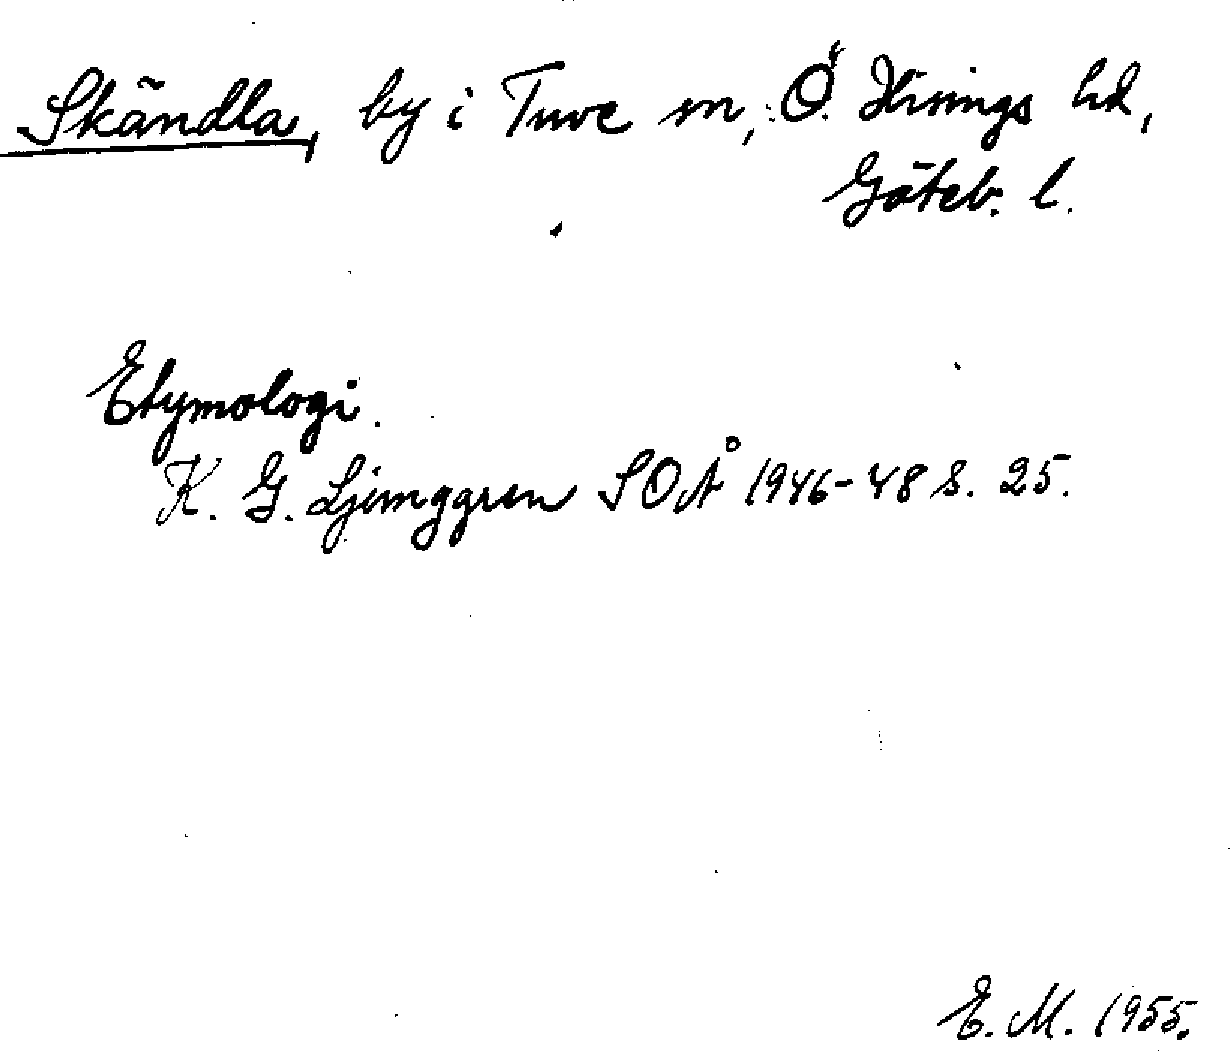 Skändla, by i Tuve sn, Ö. Hisings hd,
Göteb. l.
Etymologi.
K. G. Ljunggren SOÅ 1946-48 s. 25.
E. M. 1955.